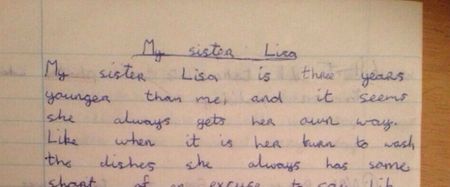 My sister Lisa
My sister Lisa is three years
younger than me, and it seems
she always gets her own way.
Like when it is her turn to wash
the dishes she always has some
short of an excuse to